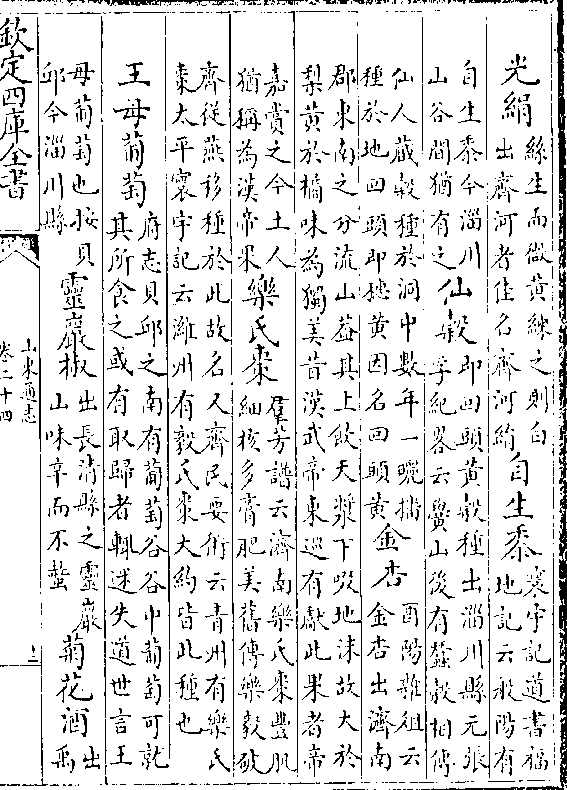 光絹絲生而微黄練之則白出齊河者佳名齊河絹自生黍寰宇記道書福地記云般陽有
自生黍今淄川山谷間猶有之仙穀即回頭黄穀種出淄川縣元張孚紀畧云黌山後有蟄穀相傳
仙人藏穀種於洞中數年一曬擂種於地回頭即穂黄因名回頭黄金杏酉陽雜俎云金杏出濟南
郡東南之分流山葢其上飲天漿下啜地沫故大於梨黄於橘味為獨美昔漢武帝東巡有獻此果者帝
嘉賞之今土人猶稱為漢帝果樂氏棗羣芳譜云濟南樂氏棗豐肌細核多膏肥美舊傳樂毅破
齊從燕移種於此故名又齊民要術云青州有樂氏棗太平寰宇記云濰州有毅氏棗大約皆此種也
王母葡萄府志貝邱之南有葡萄谷谷中葡萄可就其所食之或有取歸者輙迷失道世言王
母葡萄也按貝邱今淄川縣靈巖椒出長清縣之靈巖山味辛而不螫菊花酒出禹
欽定四庫全書
山東通志
卷二十四